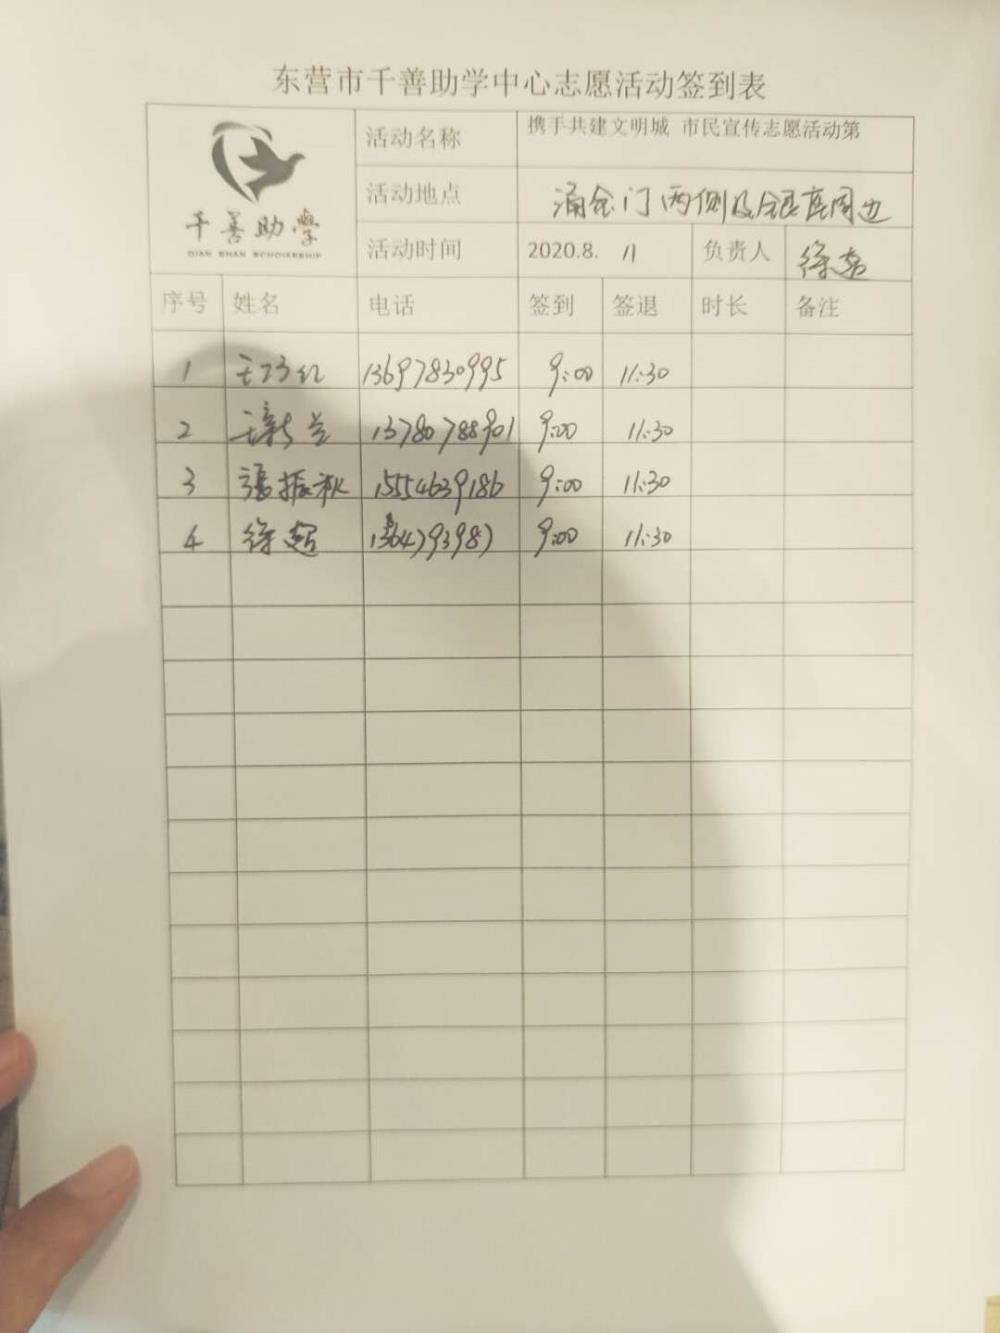 东营市千善助学中心志愿活动签到表
千善助學
QIAN SHAN SCHOLARSHIP
活动名称 携手共建文明城 市民宣传志愿活动第
活动地点 涌金门两侧及银座周边
活动时间 2020.8. 11 负责人 徐超
序号 姓名 电话 签到 签退 时长 备注
1 王巧红 13697830995 9:00 11:30
2 13780788901 9:00 11:30
3 張振秋 15554639186 9:00 11:30
4 徐超 9:00 11:30